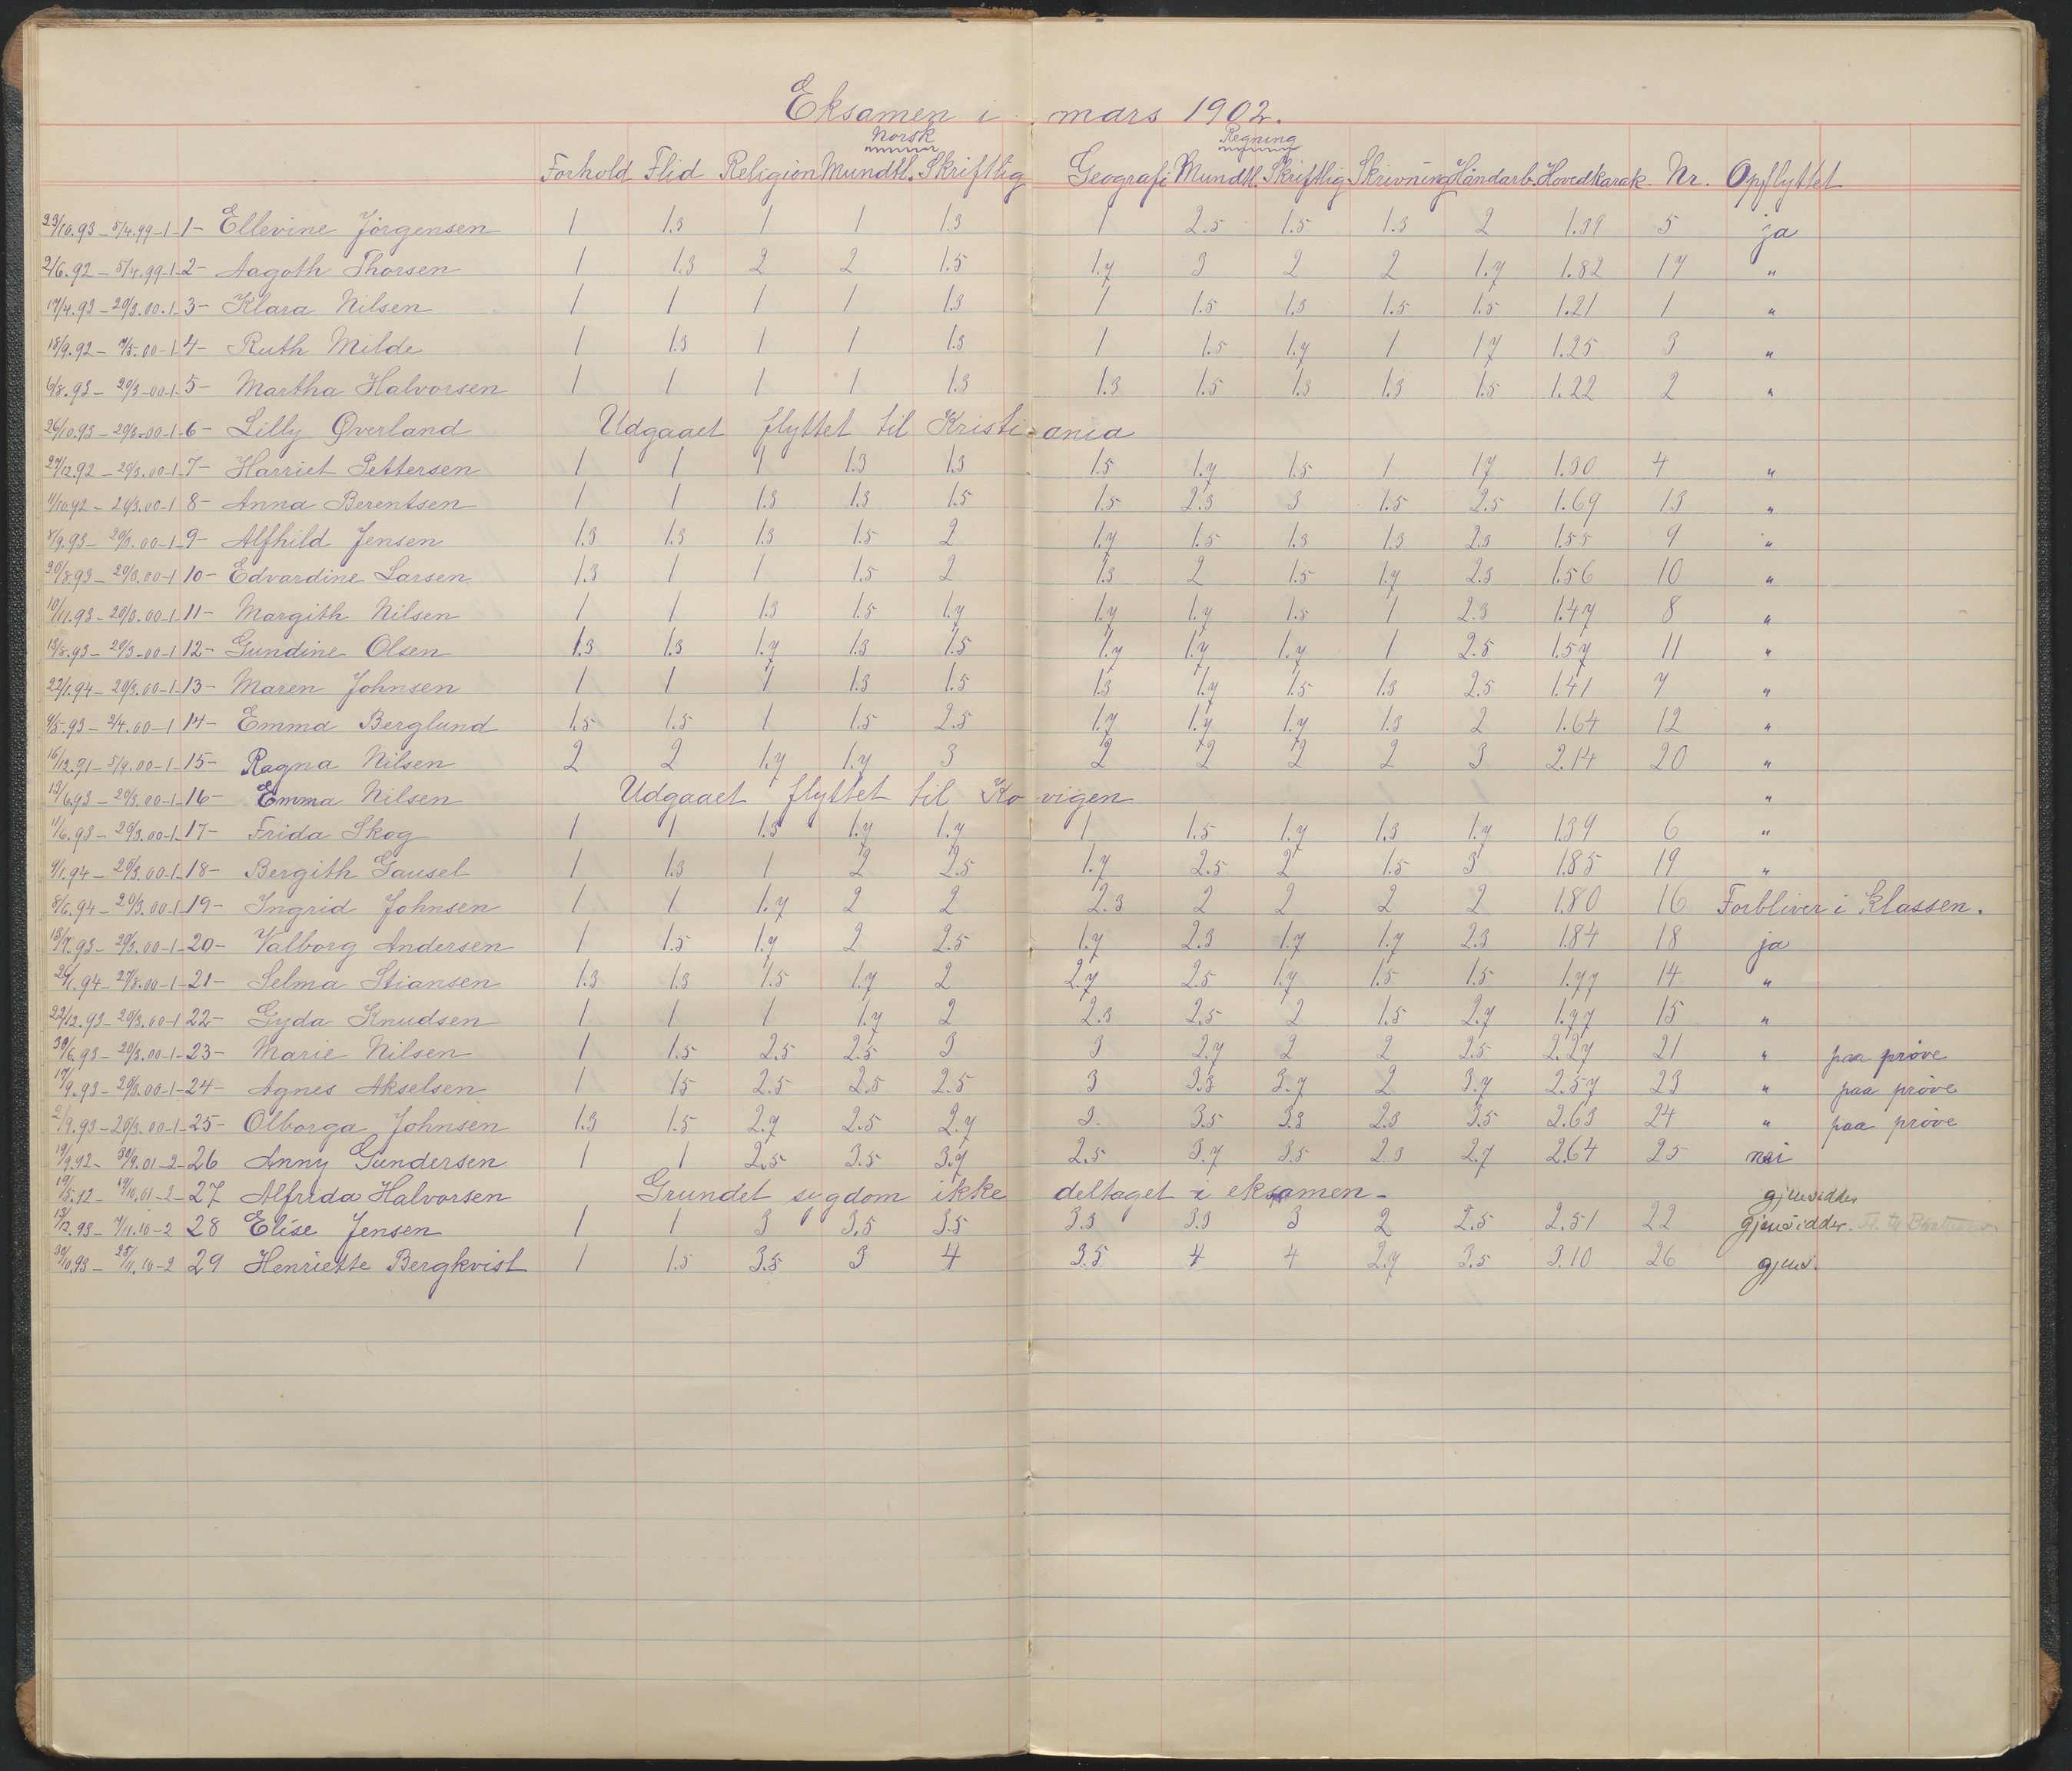 Eksamen i mars 1902.
Norsk Regning
Forhold Flid Religion Mundtl. Skriftlig Geografi Mundtl. Skriftlig Skrivning Håndarb. Hovedkarak. Nr. Opflyttet
23/10.93 – 5/4.99 – 1 – 1 – Ellevine Jörgensen 1 1.3 1 1 1.3 1 2.5 1.5 1.3 2 1.39 5 ja
2/6.92 – 5/4.99 – 1 – 2 – Aagoth Thorsen 1 1.3 2 2 1.5 1.7 3 2 2 1.7 1.82 17 "
17/4.93 – 20/3.00 – 1 – 3 – Klara Nilsen 1 1 1 1 1.3 1 1.5 1.3 1.5 1.5 1.21 1 "
18/9.92 – 7/5.00 – 1 – 4 – Ruth Milde 1 1.3 1 1 1.3 1 1.5 1.7 1 1.7 1.25 3 "
6/8.93 – 20/3.00 – 1 – 5 – Martha Halvorsen 1 1 1 1 1.3 1.3 1.5 1.3 1.3 1.5 1.22 2 "
26/10.93 – 20/3.00 – 1 – 6 – Lilly Øverland Udgaaet flyttet til Kristiania
27/12.92 – 20/3.00 – 1 – 7 – Harriet Pettersen 1 1 1 1.3 1.3 1.5 1.7 1.5 1 1.7 1.30 4 "
11/10.92 – 20/3.00 – 1 8 – Anna Berentsen 1 1 1.3 1.3 1.5 1.5 2.3 3 1.5 2.5 1.69 13 "
8/9.93 – 20/3.00 – 1 – 9 – Alfhild Jensen 1.3 1.3 1.3 1.5 2 1.7 1.5 1.3 1.3 2.3 1.55 9 "
20/8.93 – 20/3.00 – 1 10 – Edvardine Larsen 1.3 1 1 1.5 2 1.3 2 1.5 1.7 2.3 1.56 10 "
10/11.93 – 20/3.00 – 1 11 – Margith Nilsen 1 1 1.3 1.5 1.7 1.7 1.7 1.5 1 2.3 1.47 8 "
13/8.93 – 20/3.00 – 1 12 – Gundine Olsen 1.3 1.3 1.7 1.3 1.5 1.7 1.7 1.7 1 2.5 1.57 11 "
22/1.94 – 20/3.00 – 1 – 13 – Maren Johnsen 1 1 1 1.3 1.5 1.3 1.7 1.5 1.3 2.5 1.41 7 "
9/5.93 – 2/4.00 – 1 14 – Emma Berglund 1.5 1.5 1 1.5 2.5 1.7 1.7 1.7 1.3 2 1.64 12 "
16/12.91 – 5/9.00 – 1 – 15 – Ragna Nilsen 2 2 1.7 1.7 3 2 2 2 2 3 2.14 20 "
13/6.93 – 20/3.00 – 1 – 16 – Emma Nilsen Udgaaet flyttet til Kovigen "
11/6.93 – 20/3.00 – 1 – 17 – Frida Skog 1 1 1.3 1.7 1.7 1 1.5 1.7 1.3 1.7 1.39 6 "
9/1.94 – 20/3.00 – 1 – 18 – Bergith Gausel 1 1.3 1 2 2.5 1.7 2.5 2 1.5 3 1.85 19 "
8/6.94 – 20/3.00 – 1 – 19 – Ingrid Johnsen 1 1 1.7 2 2 2.3 2 2 2 2 1.80 16 Forbliver i Klassen.
20 – Valborg Andersen 1 1.5 1.7 2 2.5 1.7 2.3 1.7 1.7 2.3 1.84 18 ja
26/1.94 – 27/8.00 – 1 – 21 – Selma Stiansen 1.3 1.3 1.5 1.7 2 2.7 2.5 1.7 1.5 1.5 1.77 14 "
22/12.93 – 20/3.00 – 1 22 – Gyda Knudsen 1 1 1 1.7 2 2.3 2.5 2 1.5 2.7 1.77 15 "
30/6.93 – 20/3.00 – 1 – 23 – Marie Nilsen 1 1.5 2.5 2.5 3 3 2.7 2 2 2.5 2.27 21 " paa pröve
17/9.93 – 20/3.00 – 1 – 24 – Agnes Akselsen 1 1.5 2.5 2.5 2.5 3 3.3 3.7 2 3.7 2.57 23 " paa pröve
2/9.93 – 20/3.00 – 1 – 25 – Olborga Johnsen 1.3 1.5 2.7 2.5 2.7 3. 3.5 3.3 2.3 3.5 2.63 24 " paa pröve
19/9.92 – 30/9.01 – 2 – 26 Anny Gundersen 1 1 2.5 3.5 3.7 2.5 3.7 3.5 2.3 2.7 2.64 25 nei
19/5.92 – 19/10.01 – 2 – 27 Alfrida Halvorsen Grundet sygdom ikke deltaget i eksamen – gjensidder
13/12.93 – 7/11.10 – 2 28 Elise Jensen 1 1 3 3.5 3.5 3.3 3.3 3 2 2.5 2.51 22 gjensidder.
30/10.93 – 25/11.10 – 2 29 Henriette Bergkvist 1 1.5 3.5 3 4 3.5 4 4 2.7 3.5 3.10 26 gjens.